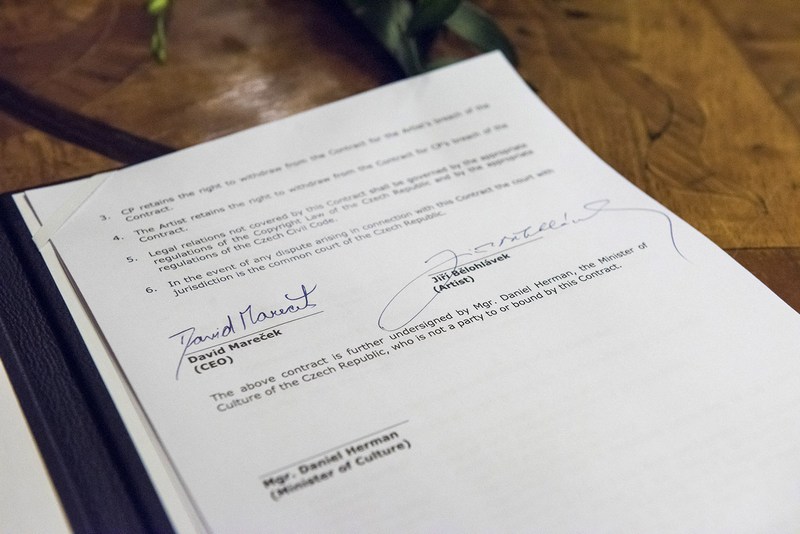 3. CP retains the right to withdraw from the Contract for the Artist's breach of the
Contract.
4. The Artist retains the right to withdraw from the Contract for CP's breach of the
Contract.
5. Legal relations not covered by this Contract shall be governed by the appropriate
regulations of the Copyright Law of the Czech Republic and by the appropriate
regulations of the Czech Civil Code.
6. In the event of any dispute arising in connection with this Contract the court with
jurisdiction is the common court of the Czech Republic.
David Mareček
Jiří Bělohlávek
David Mareček
(CEO)
Jiří Bělohlávek
(Artist)
The above contract is further undersigned by Mgr. Daniel Herman, the Minister of
Culture of the Czech Republic, who is not a party to or bound by this Contract.
Mgr. Daniel Herman
(Minister of Culture)